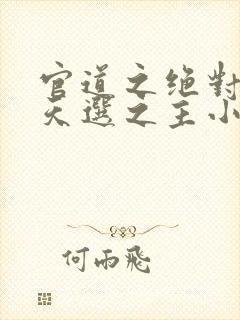 官道之绝對
天選之主小
何雨飛